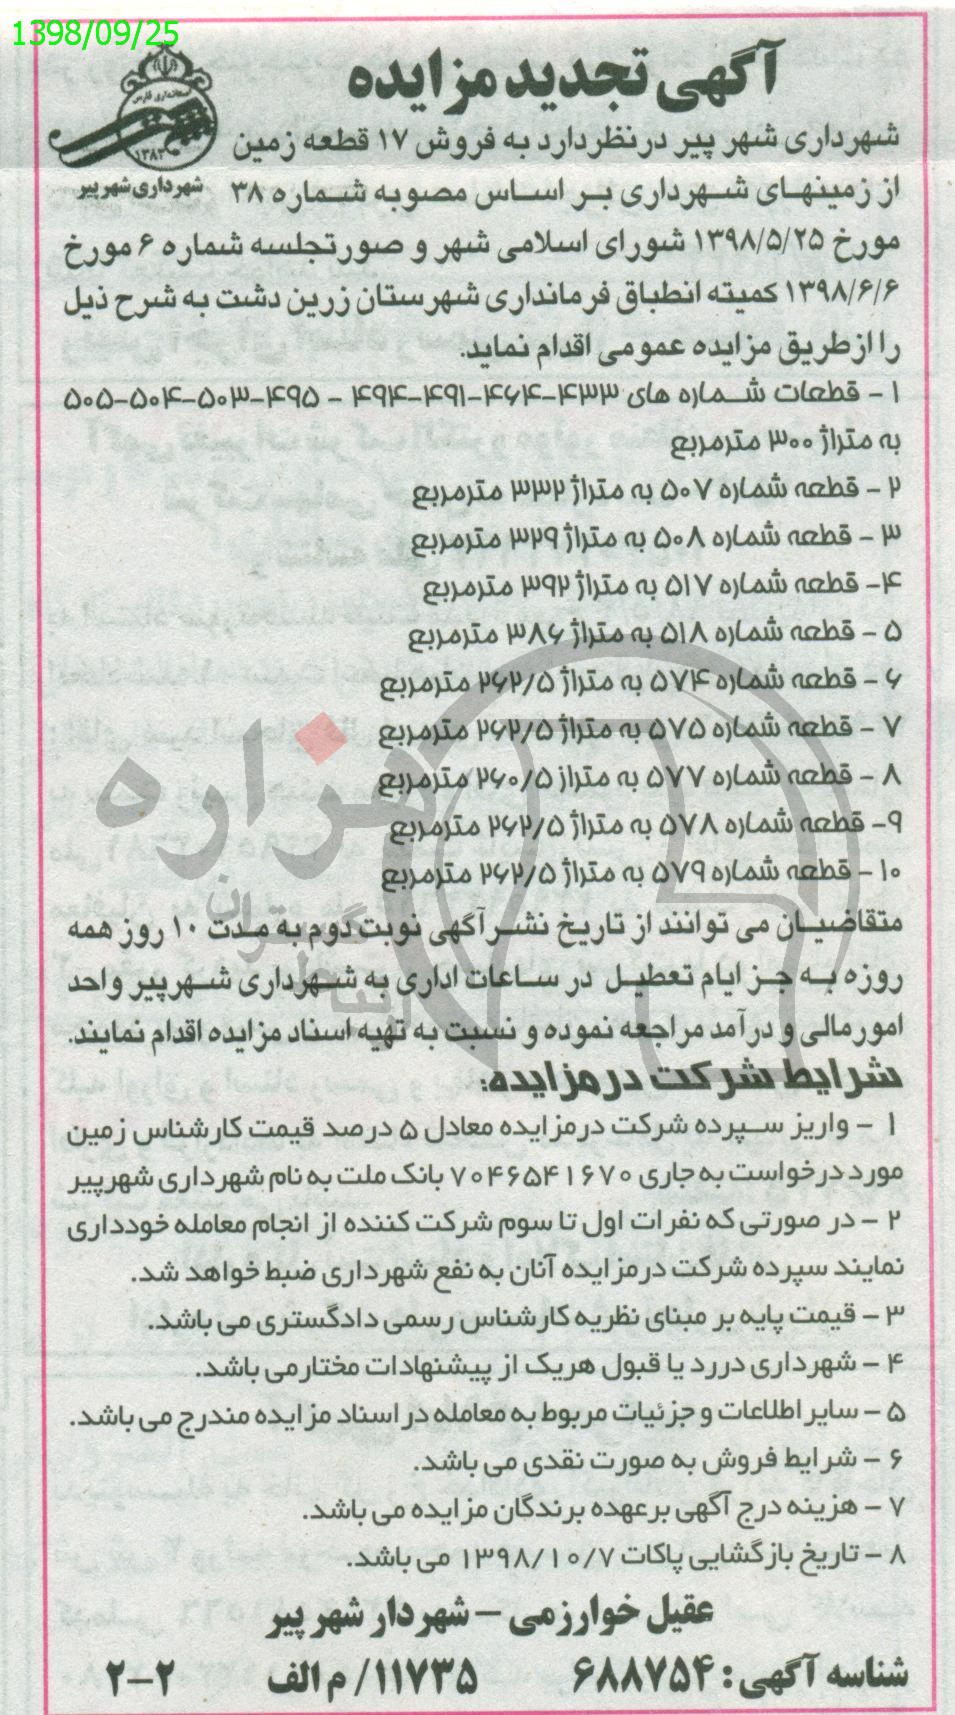 1398/09/25
آگهی تجدید مزایده
استانداری فارس
۱۳۸۲
شهرداری شهرپیر
شهرداری شهر پیر درنظردارد به فروش ۱۷ قطعه زمین
از زمینهای شهرداری بر اساس مصوبه شماره ۳۸
مورخ ۱۳۹۸/۵/۲۵ شورای اسلامی شهر و صورتجلسه شماره ۶ مورخ
۱۳۹۸/۶/۶ کمیته انطباق فرمانداری شهرستان زرین دشت به شرح ذیل
را ازطریق مزایده عمومی اقدام نماید.
۱ - قطعات شماره های ۴۳۳-۴۶۴-۴۹۱-۴۹۴ - ۴۹۵-۵۰۳-۵۰۴-۵۰۵
به متراژ ۳۰۰ مترمربع
۲ - قطعه شماره ۵۰۷ به متراژ ۳۳۲ مترمربع
۳ - قطعه شماره ۵۰۸ به متراژ ۳۲۹ مترمربع
۴- قطعه شماره ۵۱۷ به متراژ ۳۹۲ مترمربع
۵ - قطعه شماره ۵۱۸ به متراژ ۳۸۶ مترمربع
۶ - قطعه شماره ۵۷۴ به متراژ ۲۶۲/۵ مترمربع
۷ - قطعه شماره ۵۷۵ به متراژ ۲۶۲/۵ مترمربع
۸ - قطعه شماره ۵۷۷ به متراز ۲۶۰/۵ مترمربع
۹- قطعه شماره ۵۷۸ به متراژ ۲۶۲/۵ مترمربع
۱۰ - قطعه شماره ۵۷۹ به متراژ ۲۶۲/۵ مترمربع
هزاره
متقاضیان می توانند از تاریخ نشرآگهی نوبت دوم به مدت ۱۰ روز همه
روزه به جز ایام تعطیل در ساعات اداری به شهرداری شهرپیر واحد
امورمالی و درآمد مراجعه نموده و نسبت به تهیه اسناد مزایده اقدام نمایند.
شرایط شرکت درمزایده:
۱ - واریز سپرده شرکت درمزایده معادل ۵ درصد قیمت کارشناس زمین
مورد درخواست به جاری ۷۰۴۶۵۴۱۶۷۰ بانک ملت به نام شهرداری شهرپیر
۲ - در صورتی که نفرات اول تا سوم شرکت کننده از انجام معامله خودداری
نمایند سپرده شرکت درمزایده آنان به نفع شهرداری ضبط خواهد شد.
۳ - قیمت پایه بر مبنای نظریه کارشناس رسمی دادگستری می باشد.
۴ - شهرداری دررد یا قبول هریک از پیشنهادات مختارمی باشد.
۵ - سایر اطلاعات و جزئیات مربوط به معامله در اسناد مزایده مندرج می باشد.
۶ - شرایط فروش به صورت نقدی می باشد.
۷ - هزینه درج آگهی برعهده برندگان مزایده می باشد.
۸ - تاریخ بازگشایی پاکات ۱۳۹۸/۱۰/۷ می باشد.
عقیل خوارزمی - شهردار شهر پیر
شناسه آگهی: ۶۸۸۷۵۴ ۱۱۷۳۵/ م الف ۲-۲